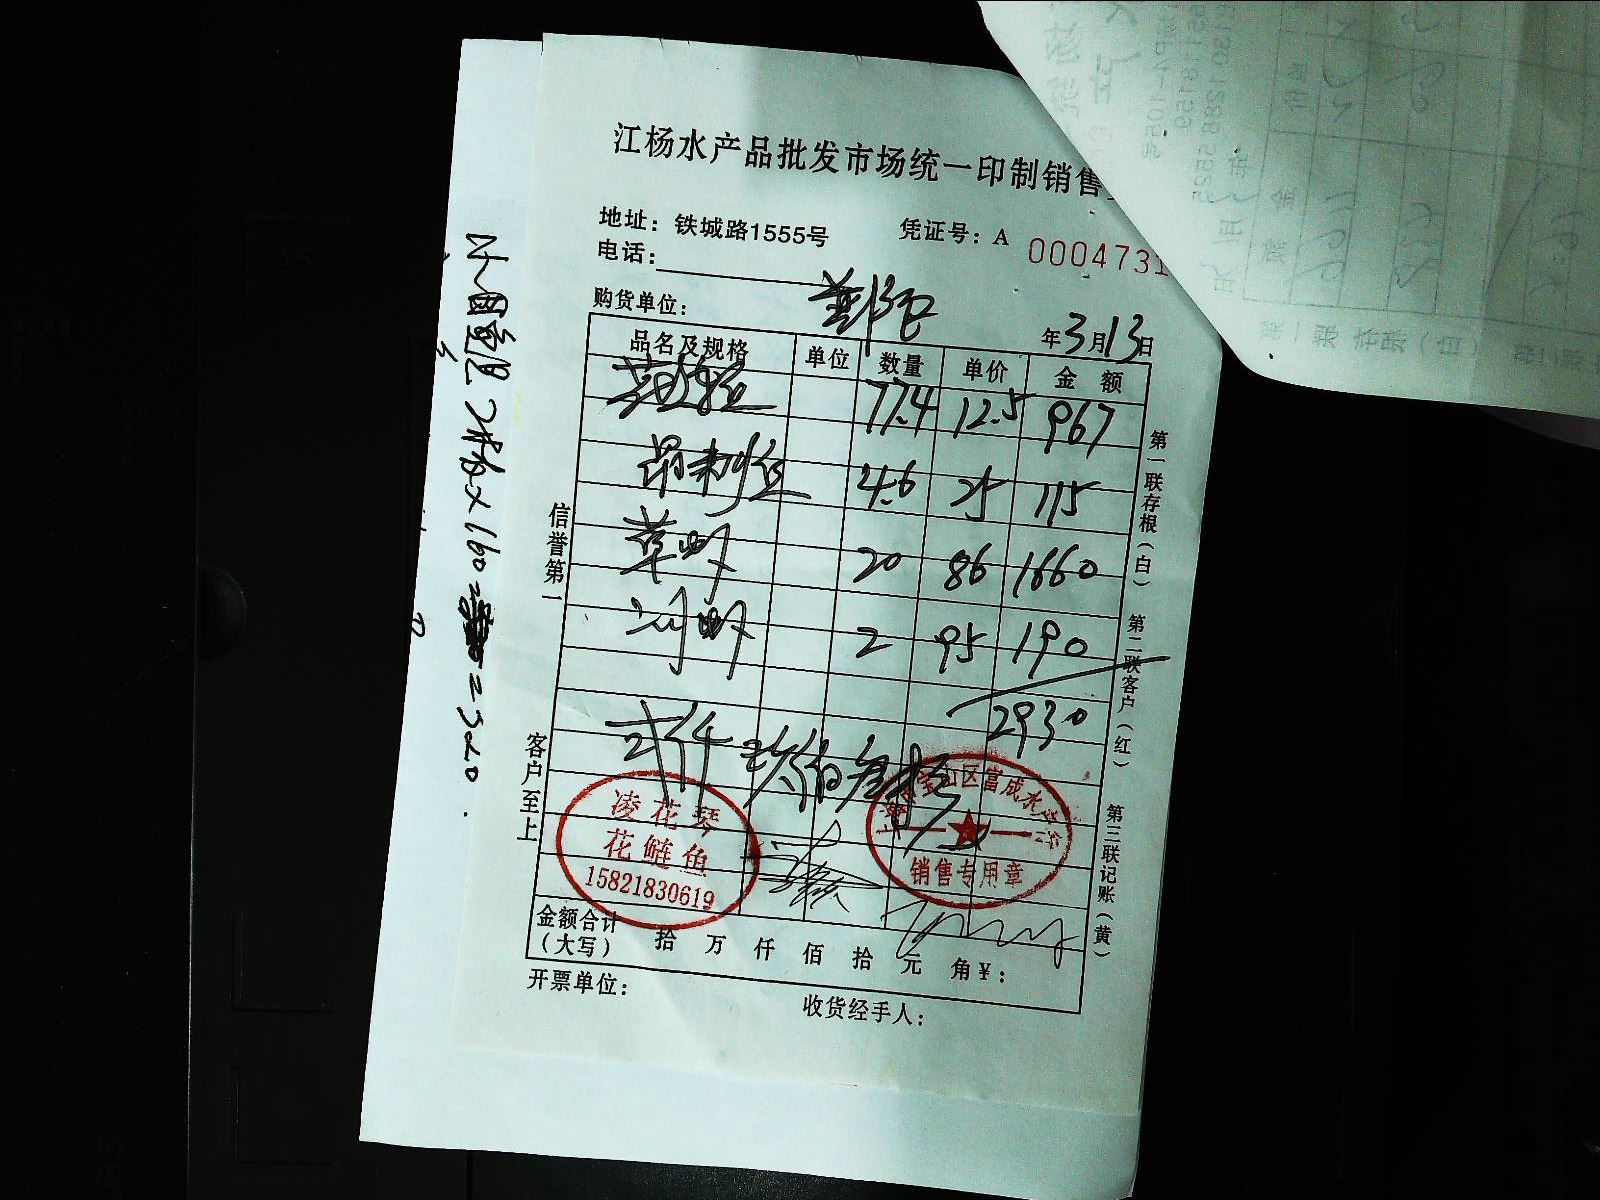 江杨水产品批发市场统一印制销售
地址：铁城路1555号 凭证号：A 0004731
电话：
购货单位：
年3月13日
品名及规格 单位 数量 单价 金 额
77.4 12.5 967
昂刺鱼 4.6 25 115
草虾 20 86 1660
河虾 2 95 190
2930
弍仟玖佰叁拾
凌花琴
花鲢鱼
15821830619
宝山区富成水产行
销售专用章
金额合计
（大写） 拾 万 仟 佰 拾 元 角¥：
开票单位：
收货经手人：
信誉第一
客户至上
第一联存根（白）
第二联客户（红）
第三联记账（黄）